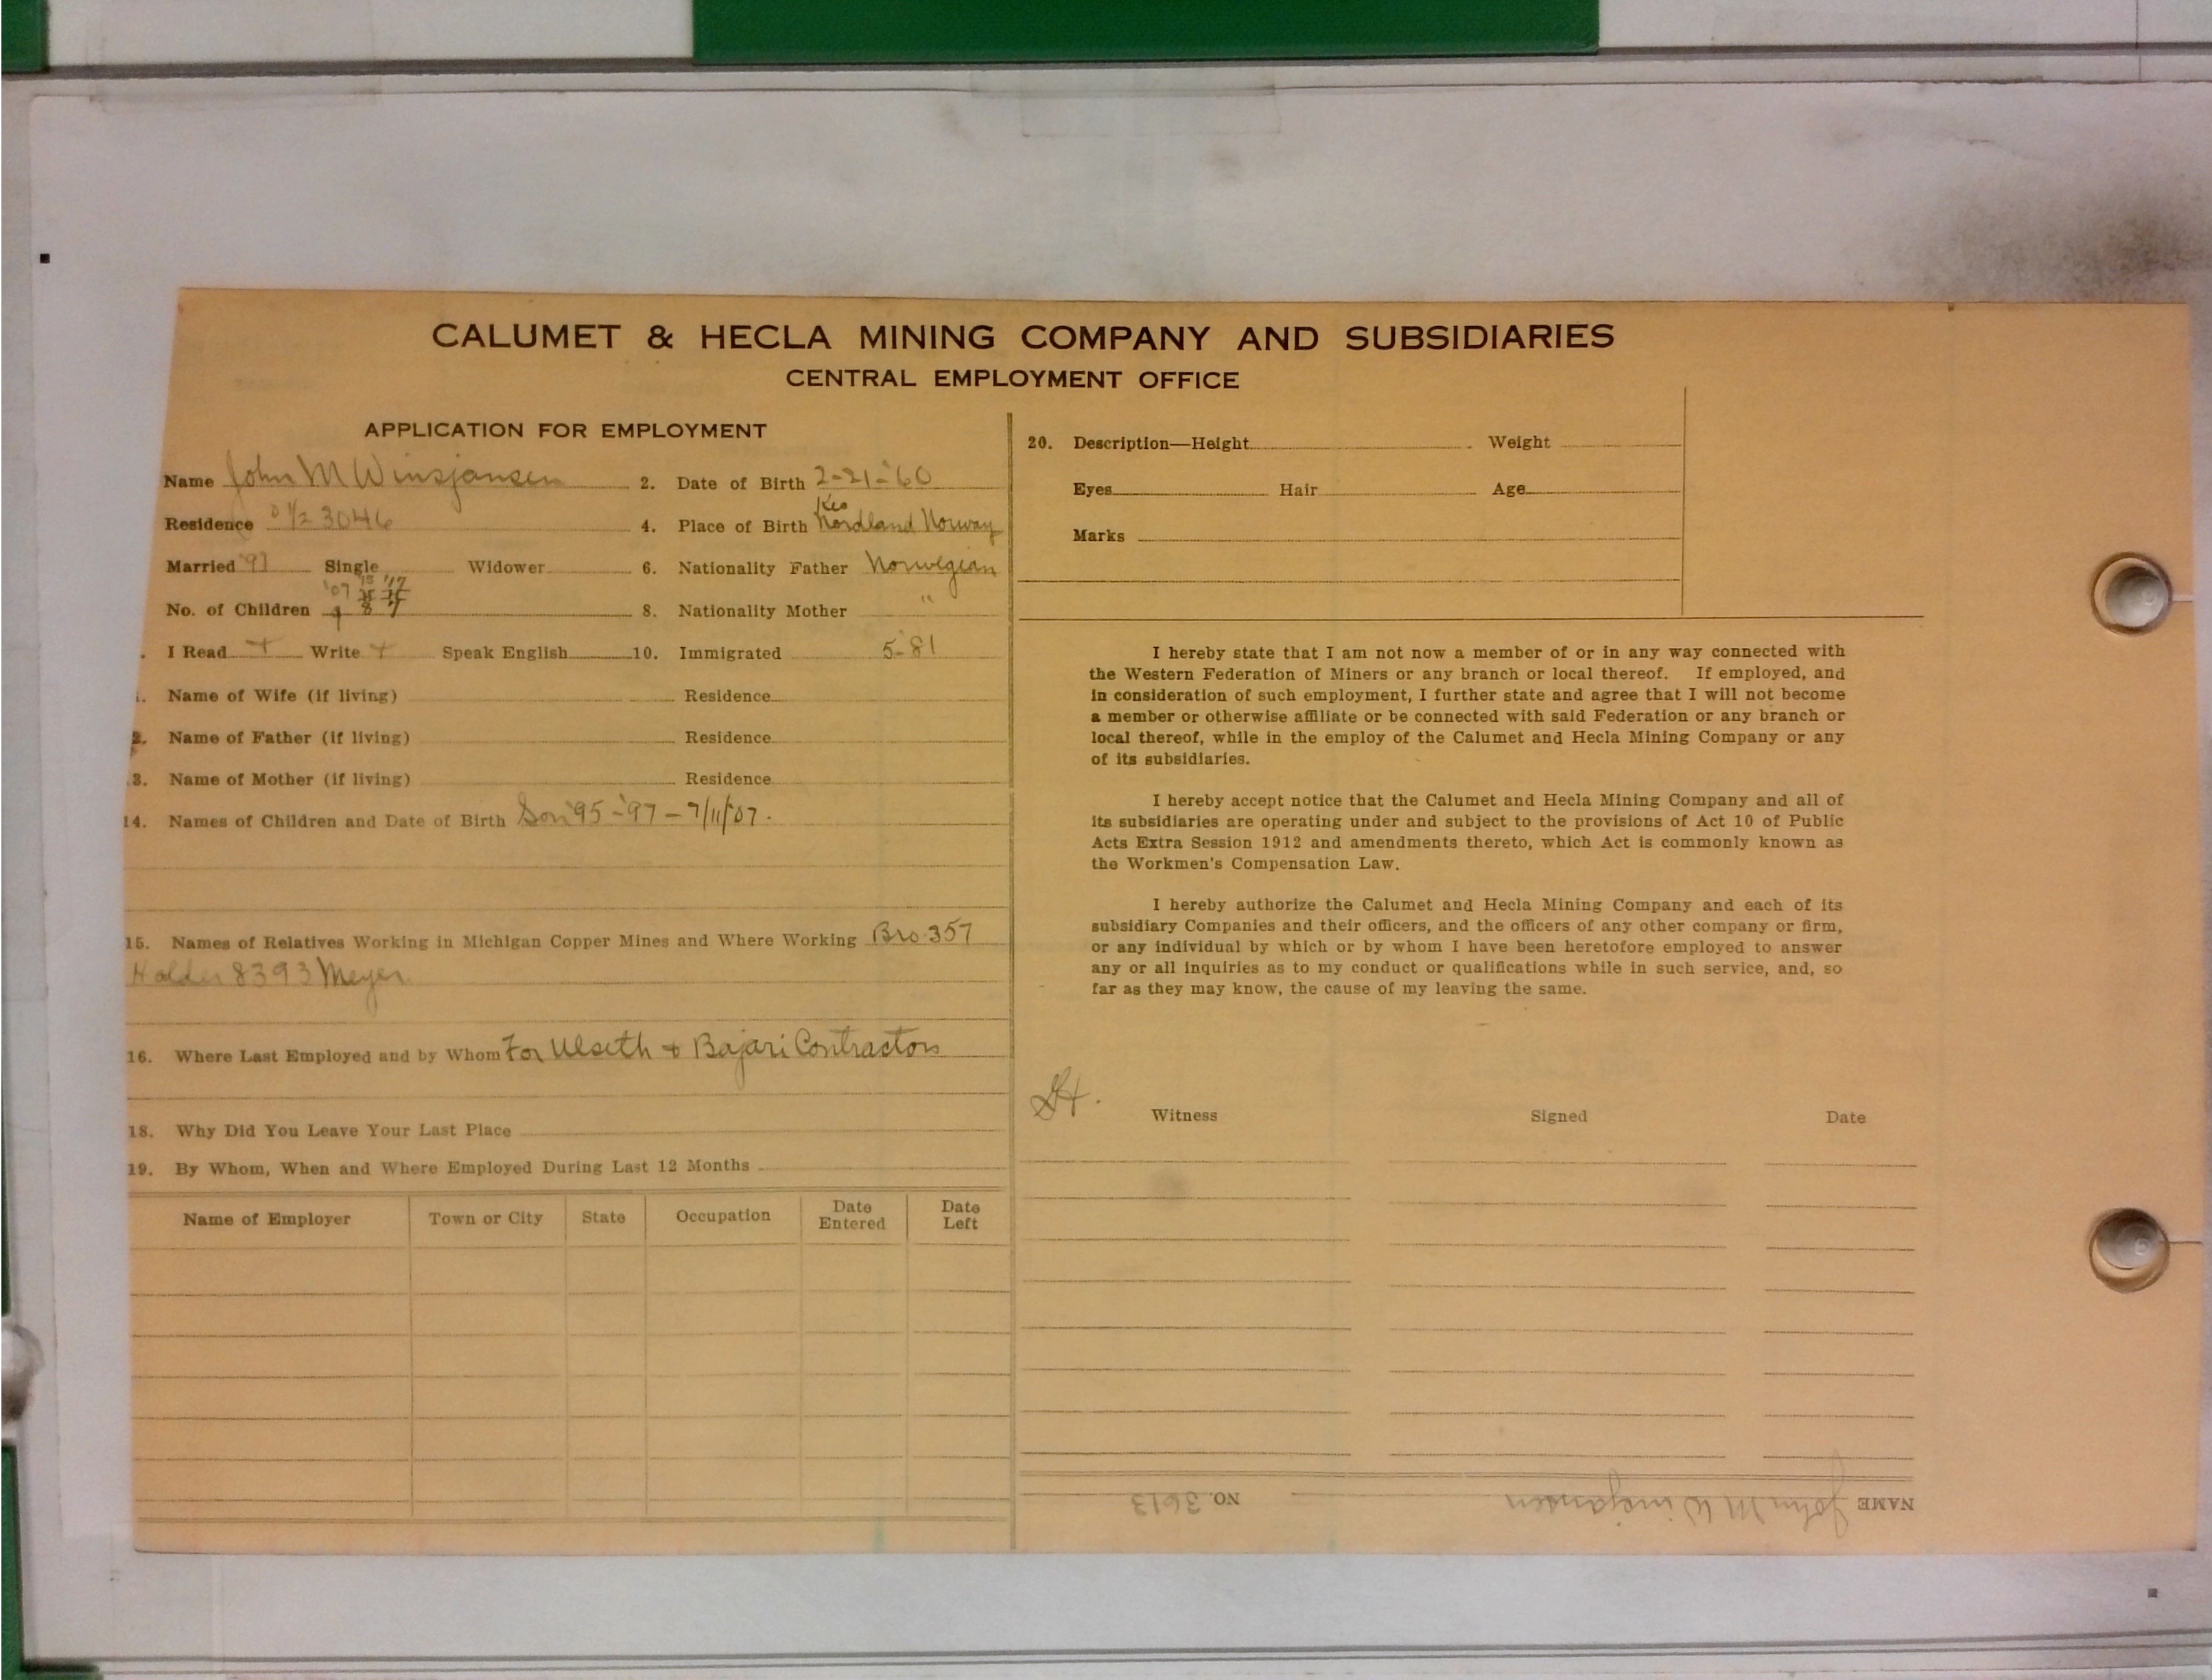 CALUMET & HECLA MINING COMPANY AND SUBSIDIARIES
CENTRAL EMPLOYMENT OFFICE
APPLICATION FOR EMPLOYMENT
Name John M Winsjansen 2. Date of Birth 2-21-'60
Residence 1/2 3046 4. Place of Birth Nordland Norway
Married '91 Single Widower 6. Nationality Father Norwegian
'07 '17
No. of Children 8 7 8. Nationality Mother "
I Read + Write + Speak English 10. Immigrated 5-'81
Name of Wife (if living) Residence
2. Name of Father (if living) Residence
3. Name of Mother (if living) Residence
14. Names of Children and Date of Birth Son '95 - '97 - 7/11/07.
15. Names of Relatives Working in Michigan Copper Mines and Where Working Bro. 357
Halder 8393 Meyer
16. Where Last Employed and by Whom For Ulseth + Bajari Contractors
18. Why Did You Leave Your Last Place
19. By Whom, When and Where Employed During Last 12 Months
Name of Employer Town or City State Occupation Date Entered Date Left
20. Description—Height Weight
Eyes Hair Age
Marks
I hereby state that I am not now a member of or in any way connected with
the Western Federation of Miners or any branch or local thereof. If employed, and
in consideration of such employment, I further state and agree that I will not become
a member or otherwise affiliate or be connected with said Federation or any branch or
local thereof, while in the employ of the Calumet and Hecla Mining Company or any
of its subsidiaries.
I hereby accept notice that the Calumet and Hecla Mining Company and all of
its subsidiaries are operating under and subject to the provisions of Act 10 of Public
Acts Extra Session 1912 and amendments thereto, which Act is commonly known as
the Workmen's Compensation Law.
I hereby authorize the Calumet and Hecla Mining Company and each of its
subsidiary Companies and their officers, and the officers of any other company or firm,
or any individual by which or by whom I have been heretofore employed to answer
any or all inquiries as to my conduct or qualifications while in such service, and, so
far as they may know, the cause of my leaving the same.
Witness Signed Date
NAME John M Winsjansen NO. 3613